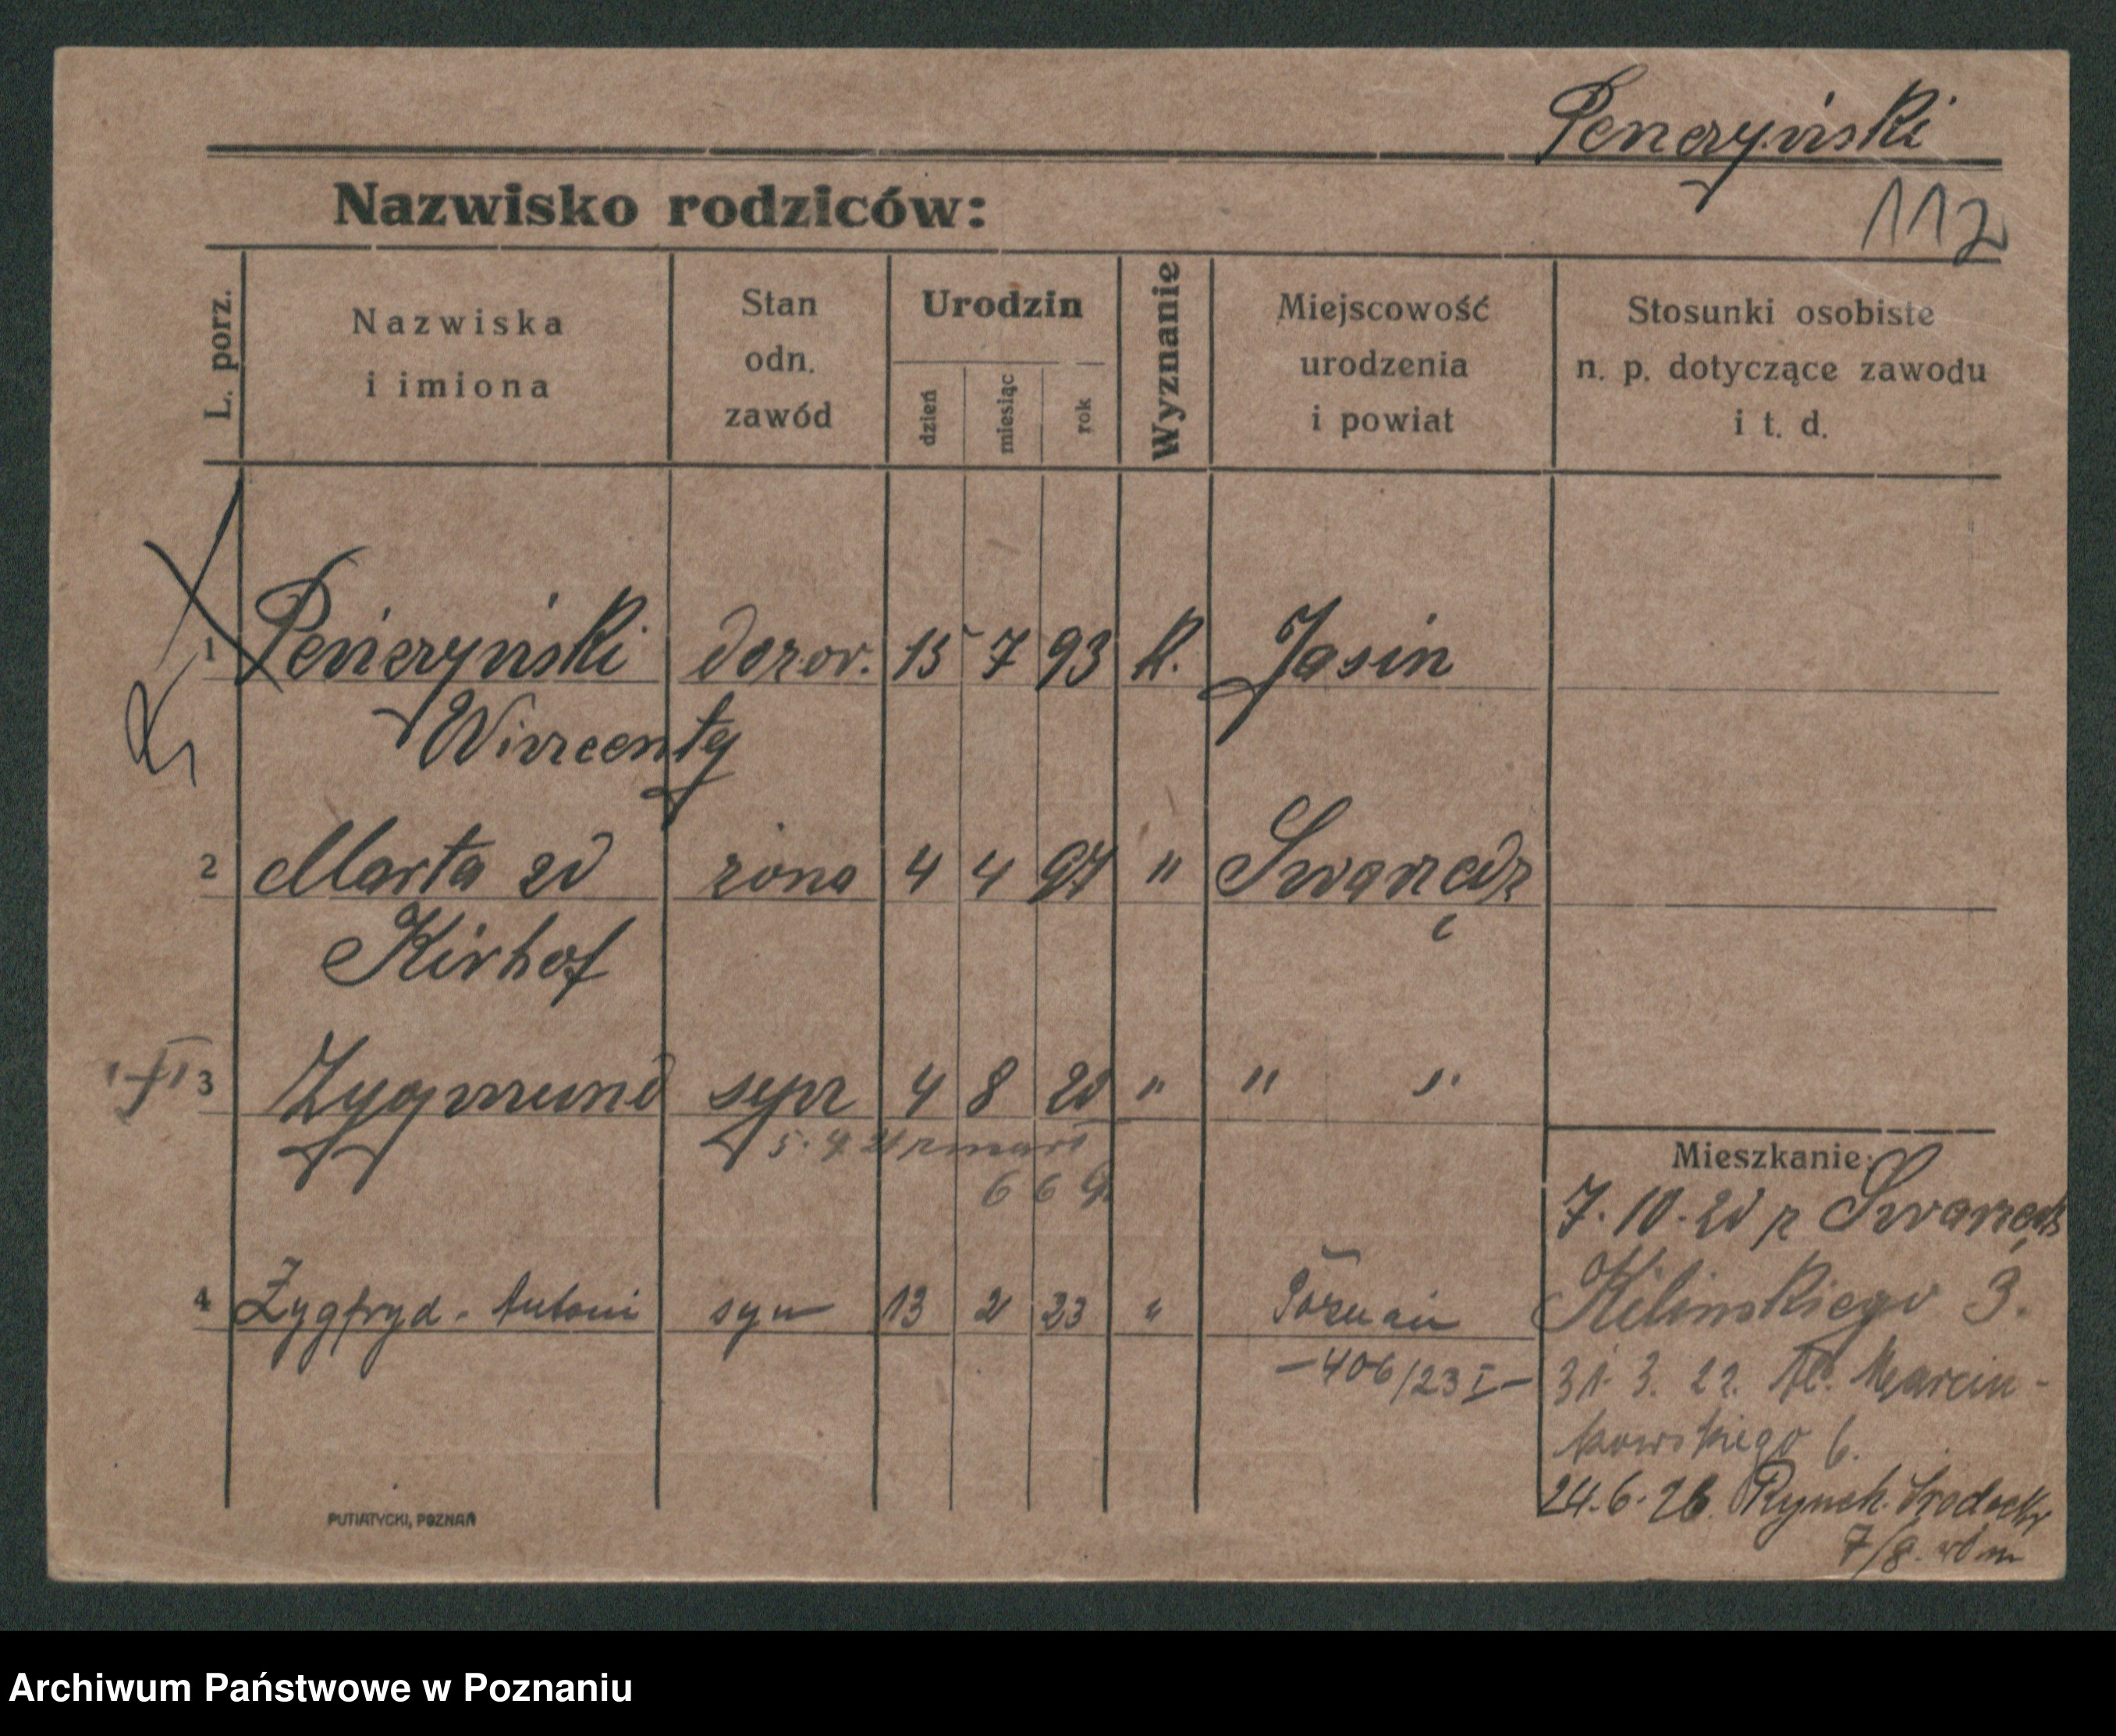 Penczyński
112
Nazwisko rodziców:
L. porz.
Nazwiska
i imiona
Stan
odn.
zawód
Urodzin
dzień
miesiąc
rok
Wyznanie
Miejscowość
urodzenia
i powiat
Stosunki osobiste
n. p. dotyczące zawodu
i t. d.
1 Penczyński dozor. 15 7 93 k. Jasin
Wincenty
2 Marta zd żona 4 4 97 " Swarzędz
Kirhof
3 Zygmund syn 4 8 20 " " "
5. 4 21 zmarł
6 6
4 Zygfryd-Antoni syn 13 2 23 " Poznań
-406/23 I-
Mieszkanie:
7. 10. 20 z Swarzędz
Kilinskiego 3.
31. 3. 22. Al. Marcin-
kowskiego 6.
24. 6. 26. Rynek Srodecki
7/8.
PUTIATYCKI, POZNAŃ
Archiwum Państwowe w Poznaniu